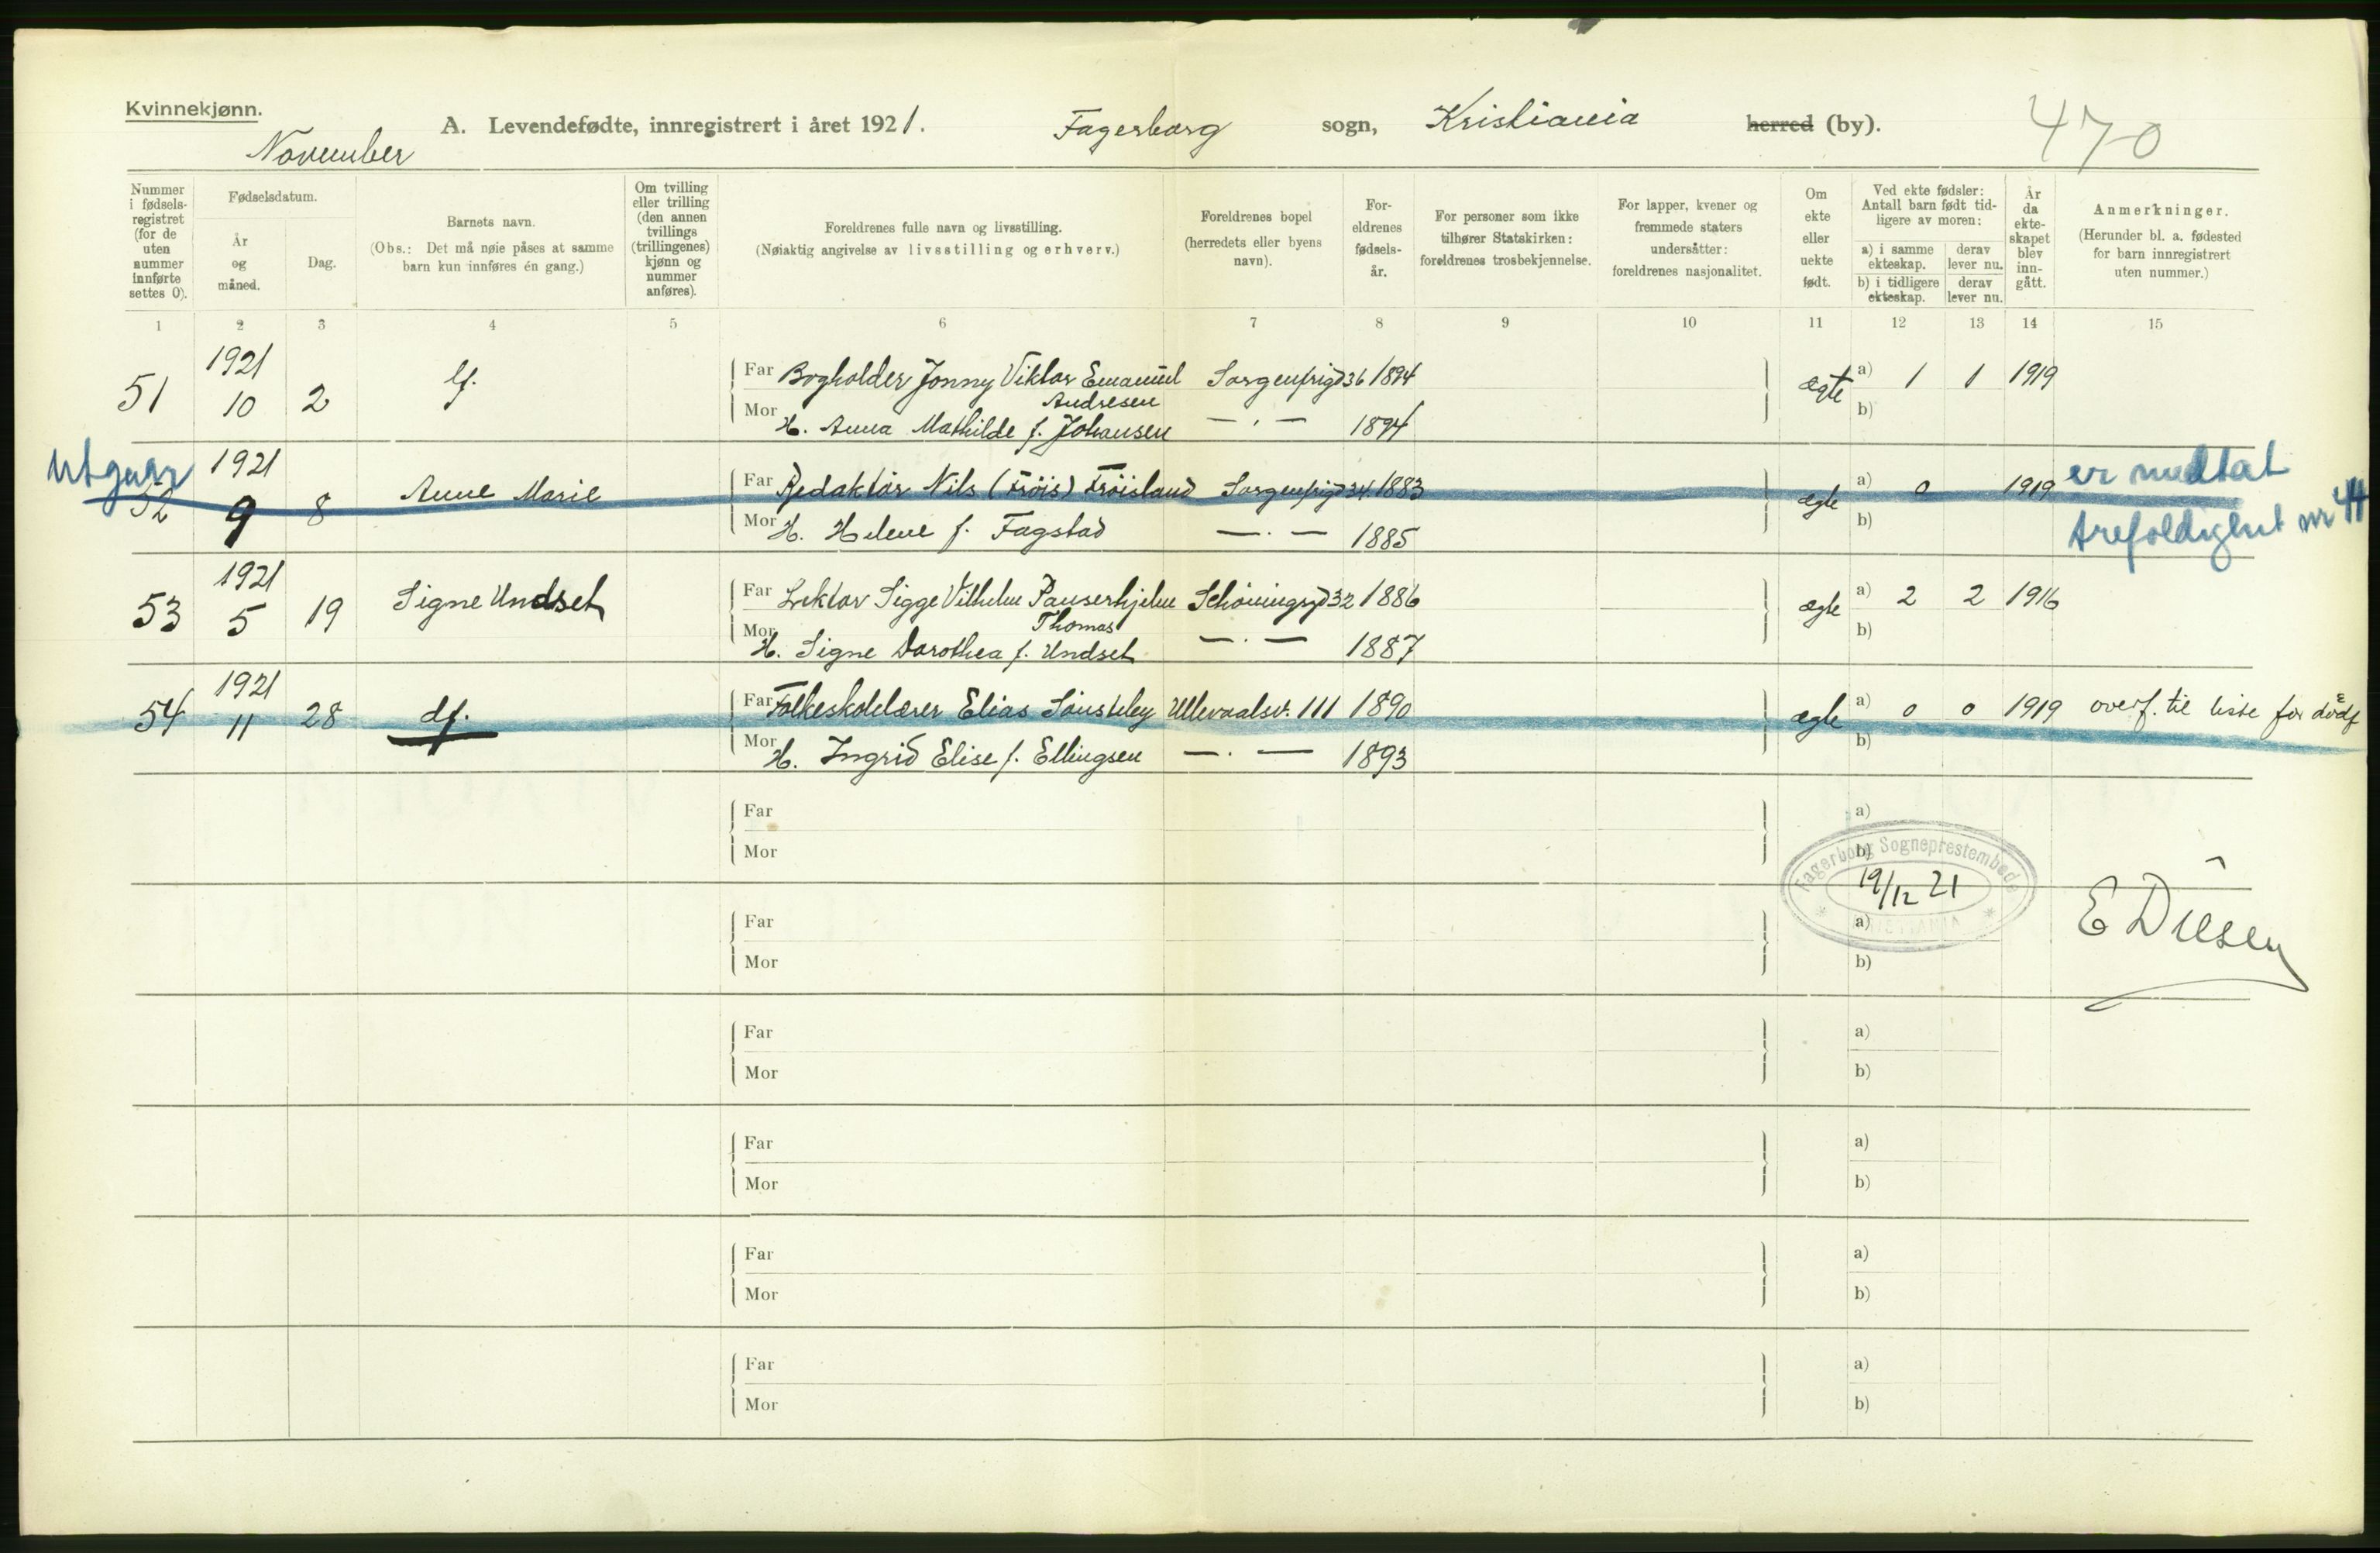 Kvinnekjønn.
A. Levendefødte, innregistrert i året 1921. Fagerborg sogn, Kristiania herred (by). 470
November
Nummer i fødsels-registret (for de uten nummer innførte settes 0).
Fødselsdatum.
År og måned.
Dag.
Barnets navn.
(Obs.: Det må nøie påses at samme barn kun innføres én gang.)
Om tvilling eller trilling (den annen tvillings (trillingenes) kjønn og nummer anføres).
Foreldrenes fulle navn og livsstilling.
(Nøiaktig angivelse av livsstilling og erhverv.)
Foreldrenes bopel (herredets eller byens navn).
For-eldrenes fødsels-år.
For personer som ikke tilhører Statskirken: foreldrenes trosbekjennelse.
For lapper, kvener og fremmede staters undersåtter: foreldrenes nasjonalitet.
Om ekte eller uekte født.
Ved ekte fødsler: Antall barn født tid-ligere av moren:
a) i samme ekteskap.
derav lever nu.
b) i tidligere ekteskap.
derav lever nu.
År da ekte-skapet blev inn-gått.
Anmerkninger.
(Herunder bl. a. fødested for barn innregistrert uten nummer.)
1 2 3 4 5 6 7 8 9 10 11 12 13 14 15
51 1921 10 2 lf. Far Bogholder Jonny Viktor Emanuel Andresen Sorgenfrigd 36 1894 ægte a) 1 1 1919
Mor H. Anna Mathilde f. Johansen — . — 1894 b)
Utgaar
52 1921 9 8 Anne Marie Far Redaktör Nils (Fröis) Fröisland Sorgenfrigd 34 1883 ægte a) 0 1919 er medtat
Mor H. Helene f. Fagstad — . — 1885 b) trefoldighet nr 44
53 1921 5 19 Signe Undset Far Lektor Sigge Vilhelm Pauserhjelm Thomas Schöningsgd 32 1886 ægte a) 2 2 1916
Mor H. Signe Dorothea f. Undset — . — 1887 b)
54 1921 11 28 df. Far Folkeskolelærer Elias Sönsteby Ullevaalsv. 111 1890 ægte a) 0 0 1919 overf. til liste for dødf
Mor H. Ingrid Elise f. Ellingsen — . — 1893 b)
Far a)
Mor b)
Fagerborg Sogneprestembede
19/12 21
KRISTIANIA
E Diesen
Far a)
Mor b)
Far a)
Mor b)
Far a)
Mor b)
Far a)
Mor b)
Far a)
Mor b)